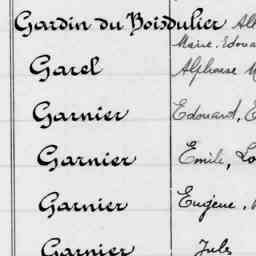 Gardin du Boisdulier
Marie. Edoua
Garel Alphonse
Garnier Edouard,
Garnier Emile,
Garnier Eugène,
Garnier Jules